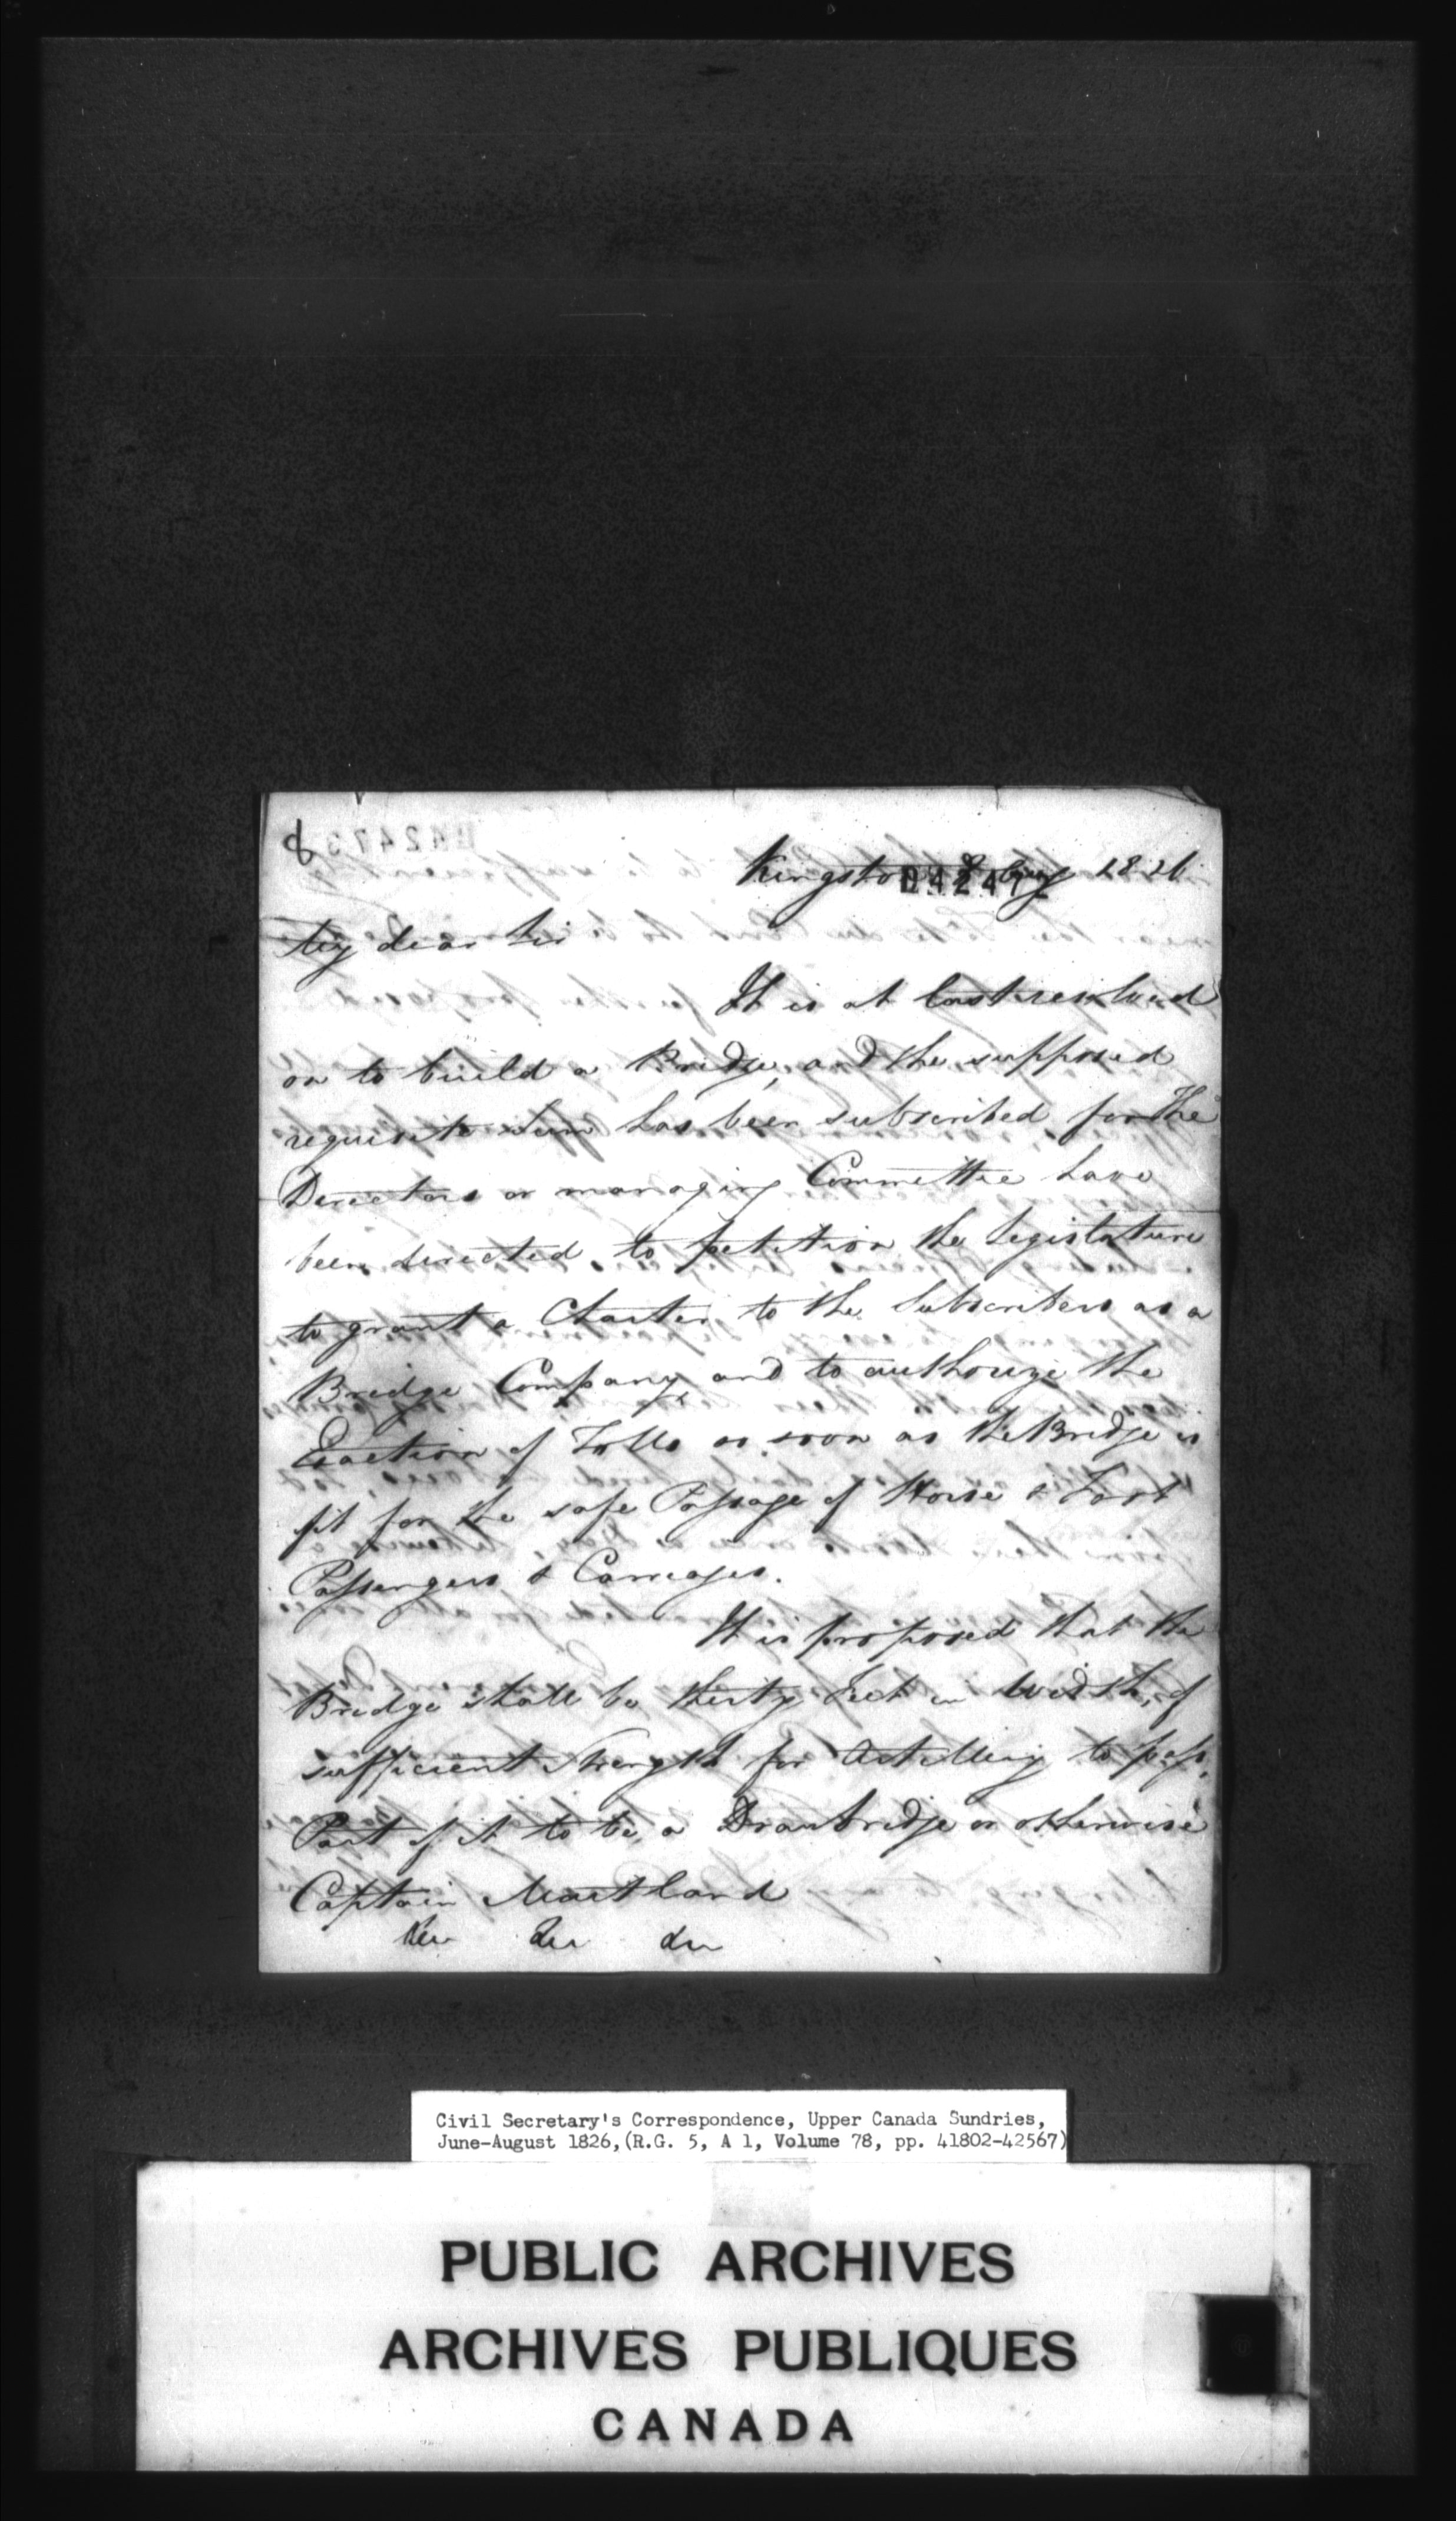 8
Kingston 8 Aug 1826
My dear Sir
It is at last resolved
on to build a Bridge, and the supposed
requisite Sum has been subscribed for The
Directors or managing Committee have
been directed to petition the Legislature
to grant a Charter to the Subscribers as a
Bridge Company, and to authorize the
Exaction of Tolls as soon as the Bridge is
fit for the safe Passage of Horse & Foot
Passengers & Carriages.
It is proposed that the
Bridge shall be thirty Feet in Width, of
sufficient Strength for Artillery to pass,
Part of it to be a Drawbridge or otherwise
Captain Maitland
Civil Secretary's Correspondence, Upper Canada Sundries,
June-August 1826, (R.G. 5, A 1, Volume 78, pp. 41802-42567)
PUBLIC ARCHIVES
ARCHIVES PUBLIQUES
CANADA